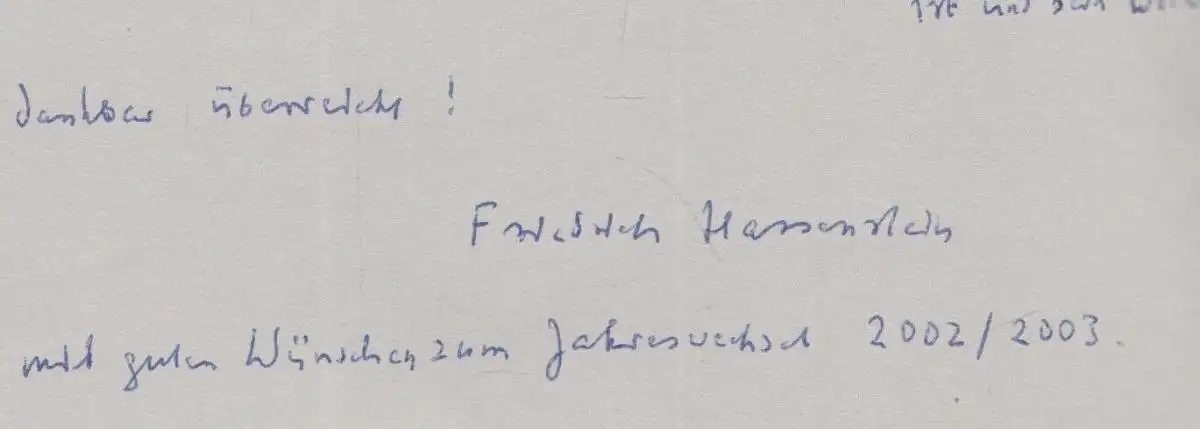 ist und sein
dankbar überreicht !
Friedrich Hassenstein
mit guten Wünschen zum Jahreswechsel 2002/2003.